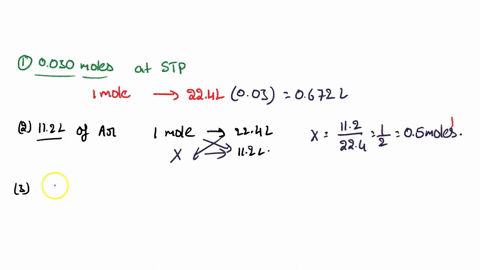 ① 0.030 moles at STP
1 mole → 22.4L (0.03) = 0.672 L
(2) 11.2L of Ar 1 mole → 22.4L X = 11.2/22.4 = 1/2 = 0.5 moles.
X → 11.2L.
(3)